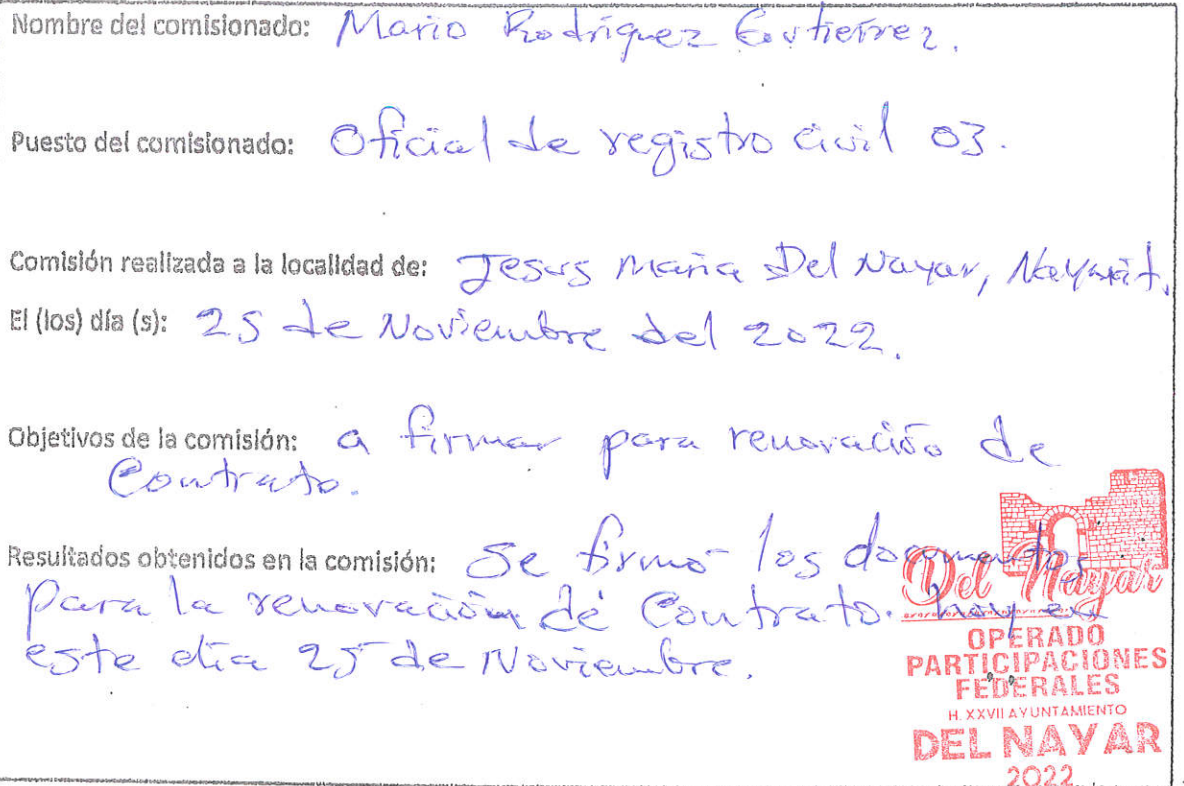 Nombre del comisionado: Mario Rodríguez Gutierrez.
Puesto del comisionado: Oficial de registro civil 03.
Comisión realizada a la localidad de: Jesus Maria Del Nayar, Nayarit.
El (los) día (s): 25 de Noviembre del 2022.
Objetivos de la comisión: a firmar para renovación de
Contrato.
Resultados obtenidos en la comisión: Se firmo los documentos
para la renovación de Contrato. hoy en
este dia 25 de Noviembre.
Del Nayar
OPERADO
PARTICIPACIONES
FEDERALES
H. XXVII AYUNTAMIENTO
DEL NAYAR
2022